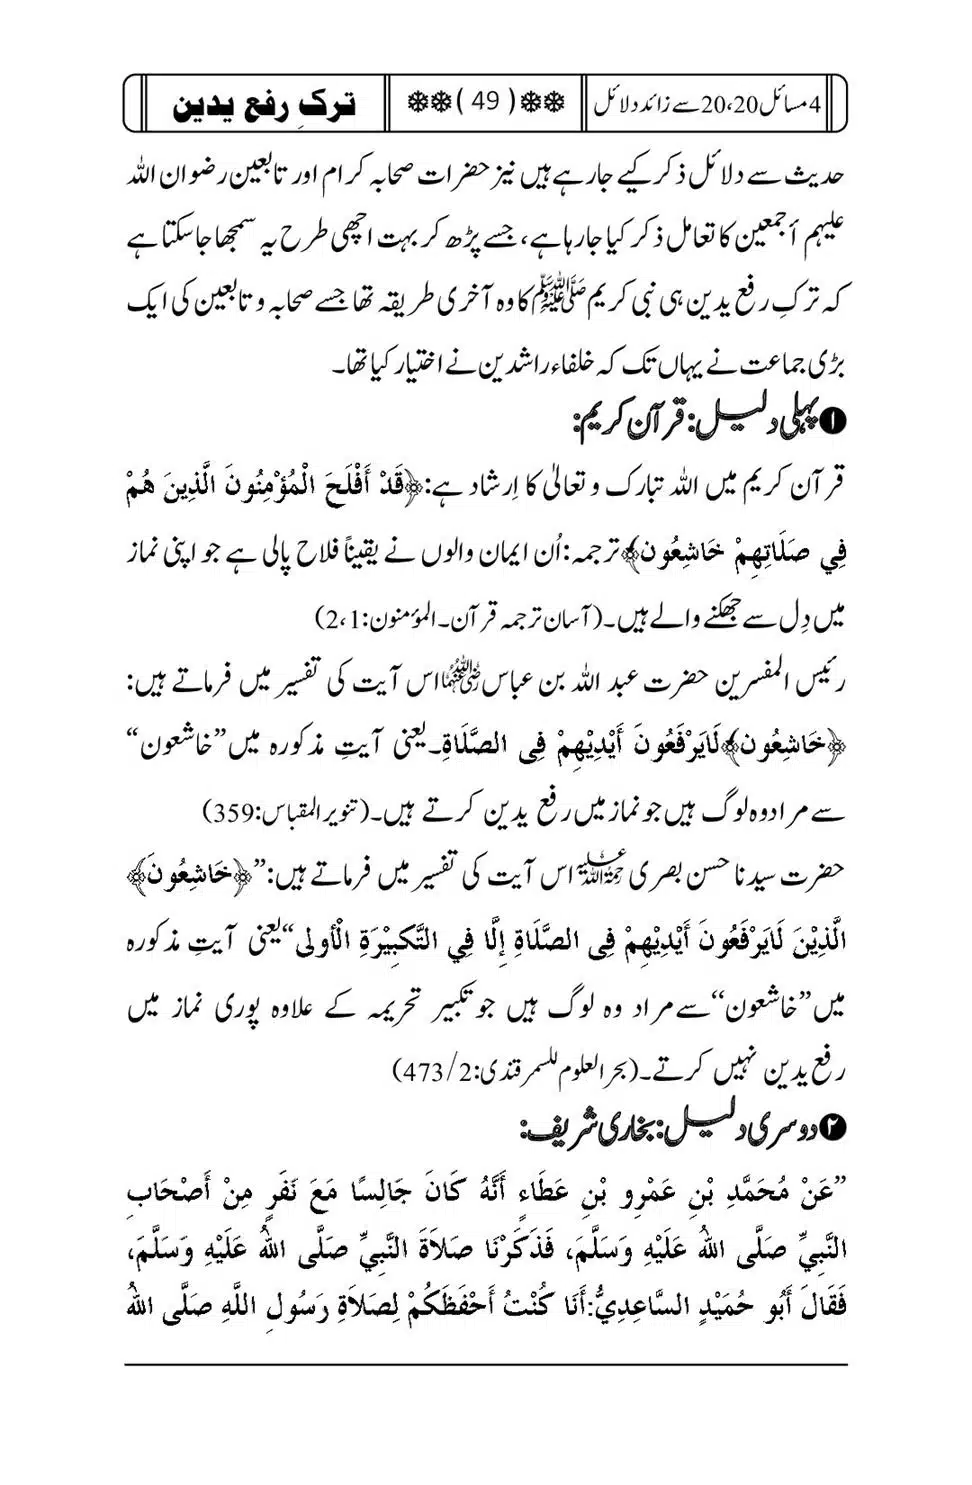 4 مسائل 20،20 سے زائد دلائل ❄❄( 49 )❄❄ ترکِ رفع یدین
حدیث سے دلائل ذکر کیے جارہے ہیں نیز حضرات صحابہ کرام اور تابعین رضوان اللہ
علیہم أجمعین کا تعامل ذکر کیا جارہا ہے، جسے پڑھ کر بہت اچھی طرح یہ سمجھا جاسکتا ہے
کہ ترکِ رفع یدین ہی نبی کریم ﷺ کا وہ آخری طریقہ تھا جسے صحابہ و تابعین کی ایک
بڑی جماعت نے یہاں تک کہ خلفاء راشدین نے اختیار کیا تھا۔
❶ پہلی دلیل: قرآن کریم:
قرآن کریم میں اللہ تبارک و تعالیٰ کا اِرشاد ہے:﴿قَدْ أَفْلَحَ الْمُؤْمِنُونَ الَّذِينَ هُمْ
فِي صَلَاتِهِمْ خَاشِعُون﴾ترجمہ:اُن ایمان والوں نے یقیناً فلاح پالی ہے جو اپنی نماز
میں دِل سے جھکنے والے ہیں۔(آسان ترجمہ قرآن۔المؤمنون:2،1)
رئیس المفسرین حضرت عبد اللہ بن عباس رضی اللہ عنہما اس آیت کی تفسیر میں فرماتے ہیں:
﴿خَاشِعُون﴾لَايَرْفَعُونَ أَيْدِيْهِمْ فِى الصَّلَاةِ۔یعنی آیتِ مذکورہ میں”خاشعون“
سے مراد وہ لوگ ہیں جو نماز میں رفع یدین کرتے ہیں۔(تنویر المقباس:359)
حضرت سیدنا حسن بصری رحمۃ اللہ علیہ اس آیت کی تفسیر میں فرماتے ہیں:”﴿خَاشِعُونَ﴾
الَّذِيْنَ لَايَرْفَعُونَ أَيْدِيْهِمْ فِى الصَّلَاةِ إِلَّا فِي التَّكبِيْرَةِ الْأولى“یعنی آیتِ مذکورہ
میں”خاشعون“سے مراد وہ لوگ ہیں جو تکبیر تحریمہ کے علاوہ پوری نماز میں
رفع یدین نہیں کرتے۔(بحر العلوم للسمرقندی:2/473)
❷ دوسری دلیل: بخاری شریف:
”عَنْ مُحَمَّدِ بْنِ عَمْرِو بْنِ عَطَاءٍ أَنَّهُ كَانَ جَالِسًا مَعَ نَفَرٍ مِنْ أَصْحَابِ
النَّبِيِّ صَلَّى اللهُ عَلَيْهِ وَسَلَّمَ، فَذَكَرْنَا صَلاَةَ النَّبِيِّ صَلَّى اللهُ عَلَيْهِ وَسَلَّمَ،
فَقَالَ أَبُو حُمَيْدٍ السَّاعِدِيُّ:أَنَا كُنْتُ أَحْفَظَكُمْ لِصَلاَةِ رَسُولِ اللَّهِ صَلَّى اللهُ